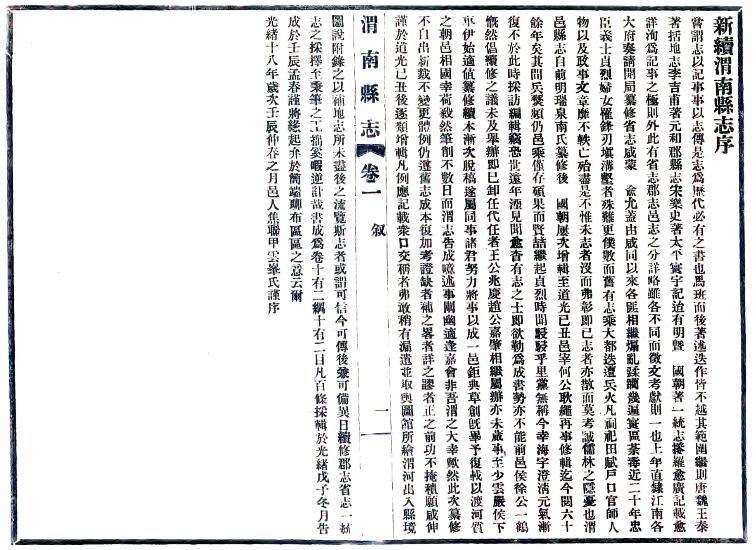 新續渭南縣志序
嘗謂志以記事事以志傳是志爲歷代必有之書也馬班而後著述迭作皆不越其範圍繼則唐魏王泰
著括地志李吉甫著元和郡縣志宋樂史著太平寰宇記迨有明暨　國朝著一統志搜羅愈廣記載愈
詳洵爲記事之極則外此有省志郡志邑志之分詳略雖各不同而徵文考獻則一也上年直隸江南各
大府奏請開局纂修省志咸蒙　兪允蓋由咸同以來各匪相繼煽亂蹂躪幾遍寰區荼毒近二十年忠
臣義士貞烈婦女罹鋒刃塡溝壑者殊難更僕數而舊有志乘大都迭遭兵火凡祠祀田賦戶口官師人
物以及政事文章靡不軼亡殆盡是不惟未志者沒而弗彰即已志者亦散而莫考誠儒林之隱憂也渭
邑縣志自前明瑞泉南氏纂修後　國朝屢次增輯至道光己丑邑宰何公耿繩再事修輯迄今閱六十
餘年矣其間兵燹頻仍邑乘僅存碩果而賢喆繼起貞烈時聞駸駸乎里黨無稱今幸海宇澄淸元氣漸
復不於此時採訪編輯竊恐世遠年湮見聞愈杳有志之士即欲勒爲成書勢亦不能前邑侯徐公一鶴
慨然倡續修之議未及舉辦即已卸任代任者王公兆慶趙公嘉肇相繼屬辦亦未蕆事至少雲嚴侯下
車伊始適值纂修續本漸次脫稿遂屬同事諸君努力將事以成一邑鉅典草創旣畢予復載以渡河質
之朝邑相國幸荷毅然筆削不數日而渭志告成噫述事闡幽適逢嘉會非吾渭之大幸歟然此次纂修
不自出新裁不變更體例仍遵舊志成本復加考證缺者補之畧者詳之謬者正之前功不掩積願咸伸
謹於道光己丑後逐類增輯凡例應記載衆口交稱者弗敢稍有漏遺並取輿圖館所繪渭河出入縣境
渭南縣志　卷一　敘　一
圖說附錄之以補地志所未盡後之流覽斯志者或謂可信今可傳後兼可備異日續修郡志省志一統
志之採擇至秉筆之工拙奚暇逆計哉書成爲卷十有二綱十有二目凡百條採輯於光緒戊子冬月告
成於壬辰孟春謹將緣起弁於簡端聊布區區之意云爾
光緒十八年歲次壬辰仲春之月邑人焦聯甲雲峯氏謹序